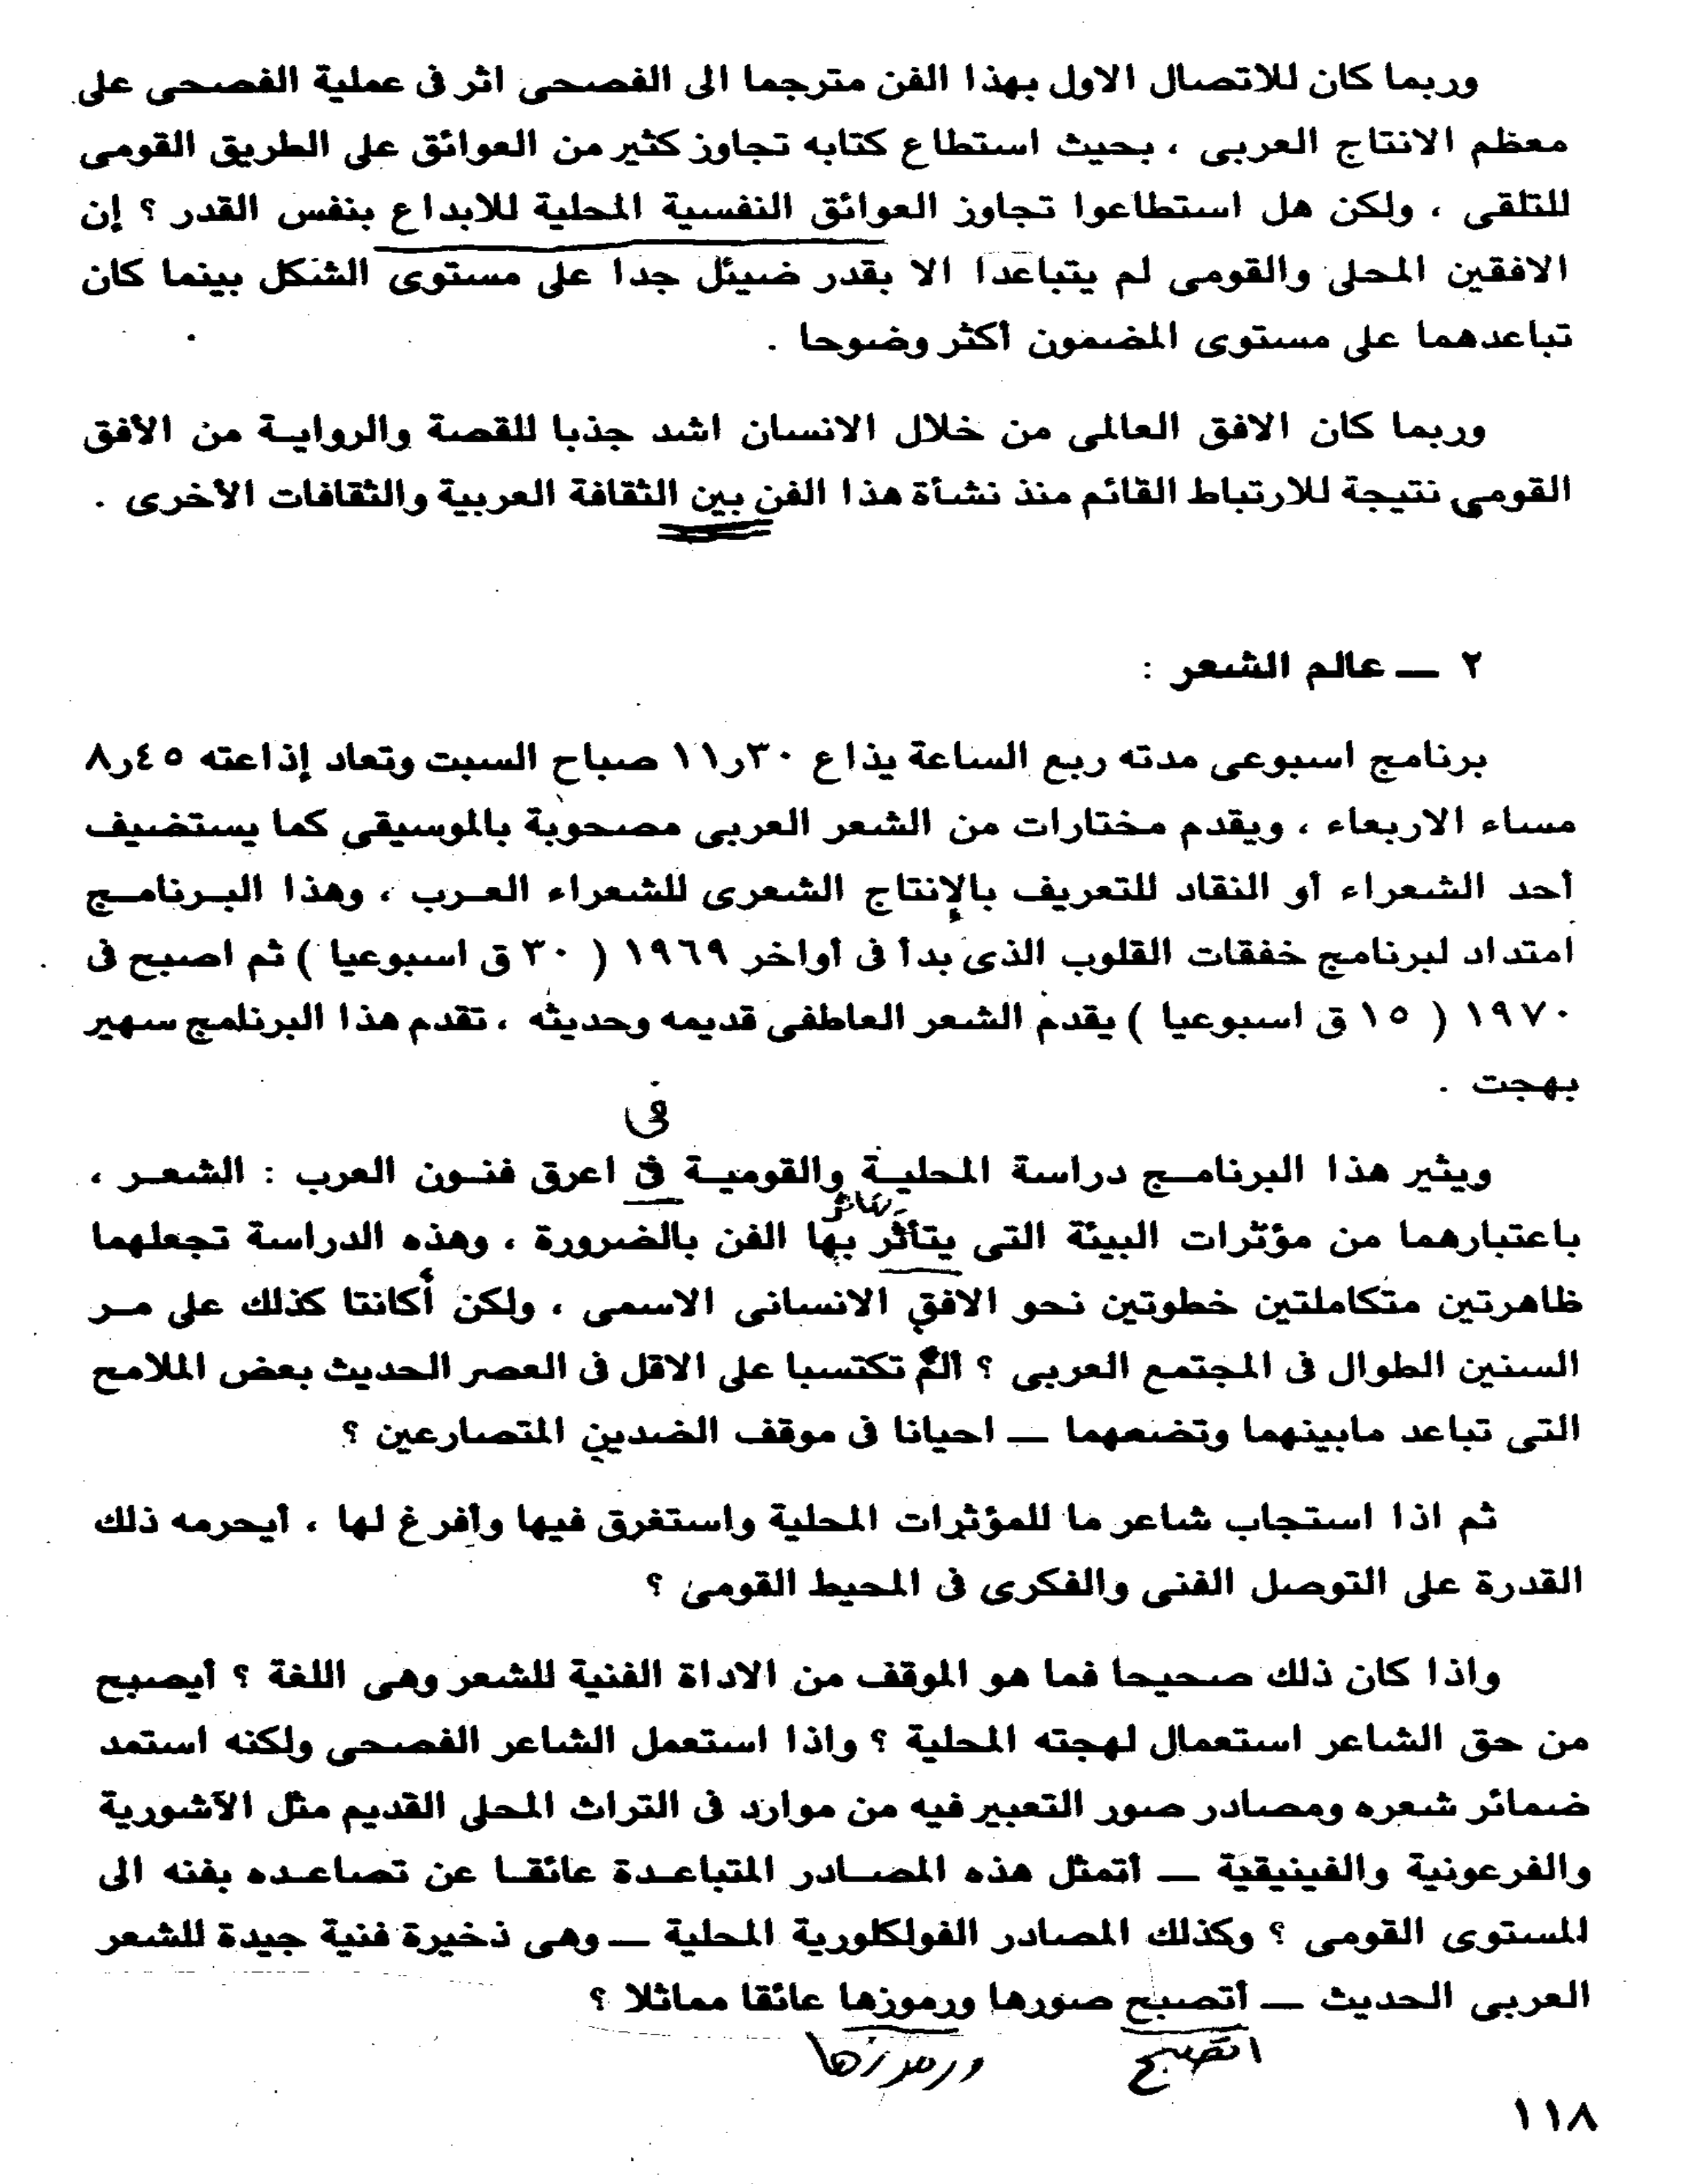 وربما كان للاتصال الاول بهذا الفن مترجما الى الفصحى اثر فى عملية الفصحى على
معظم الانتاج العربى ، بحيث استطاع كتابه تجاوز كثير من العوائق على الطريق القومى
للتلقى ، ولكن هل استطاعوا تجاوز العوائق النفسية المحلية للابداع بنفس القدر ؟ إن
الافقين المحلى والقومى لم يتباعدا الا بقدر ضيئل جدا على مستوى الشكل بينما كان
تباعدهما على مستوى المضمون أكثر وضوحا .
وربما كان الافق العالمى من خلال الانسان اشد جذبا للقصة والرواية من الأفق
القومى نتيجة للارتباط القائم منذ نشأة هذا الفن بين الثقافة العربية والثقافات الأخرى .
٢ — عالم الشعر :
برنامج اسبوعى مدته ربع الساعة يذاع ٣٠ر١١ صباح السبت وتعاد إذاعته ٤٥ر٨
مساء الاربعاء ، ويقدم مختارات من الشعر العربى مصحوبة بالموسيقى كما يستضيف
أحد الشعراء أو النقاد للتعريف بالإنتاج الشعرى للشعراء العرب ، وهذا البرنامج
امتداد لبرنامج خفقات القلوب الذى بدأ فى أواخر ١٩٦٩ ( ٣٠ ق اسبوعيا ) ثم اصبح فى
١٩٧٠ ( ١٥ ق اسبوعيا ) يقدم الشعر العاطفى قديمه وحديثه ، تقدم هذا البرنامج سهير
بهجت .
فى
ويثير هذا البرنامج دراسة المحلية والقومية فى اعرق فنون العرب : الشعر ،
يتأثر
باعتبارهما من مؤثرات البيئة التى يتأثر بها الفن بالضرورة ، وهذه الدراسة تجعلهما
ظاهرتين متكاملتين خطوتين نحو الافق الانسانى الاسمى ، ولكن أكانتا كذلك على مر
السنين الطوال فى المجتمع العربى ؟ ألم تكتسبا على الاقل فى العصر الحديث بعض الملامح
التى تباعد مابينهما وتضعهما — احيانا فى موقف الضدين المتصارعين ؟
ثم اذا استجاب شاعر ما للمؤثرات المحلية واستغرق فيها وأفرغ لها ، أيحرمه ذلك
القدرة على التوصل الفنى والفكرى فى المحيط القومى ؟
واذا كان ذلك صحيحا فما هو الموقف من الاداة الفنية للشعر وهى اللغة ؟ أيصبح
من حق الشاعر استعمال لهجته المحلية ؟ واذا استعمل الشاعر الفصحى ولكنه استمد
ضمائر شعره ومصادر صور التعبير فيه من موارد فى التراث المحلى القديم مثل الآشورية
والفرعونية والفينيقية — أتمثل هذه المصادر المتباعدة عائقا عن تصاعده بفنه الى
المستوى القومى ؟ وكذلك المصادر الفولكلورية المحلية — وهى ذخيرة فنية جيدة للشعر
العربى الحديث — أتصبح صورها ورموزها عائقا مماثلا ؟
اتصبح ورموزها
١١٨